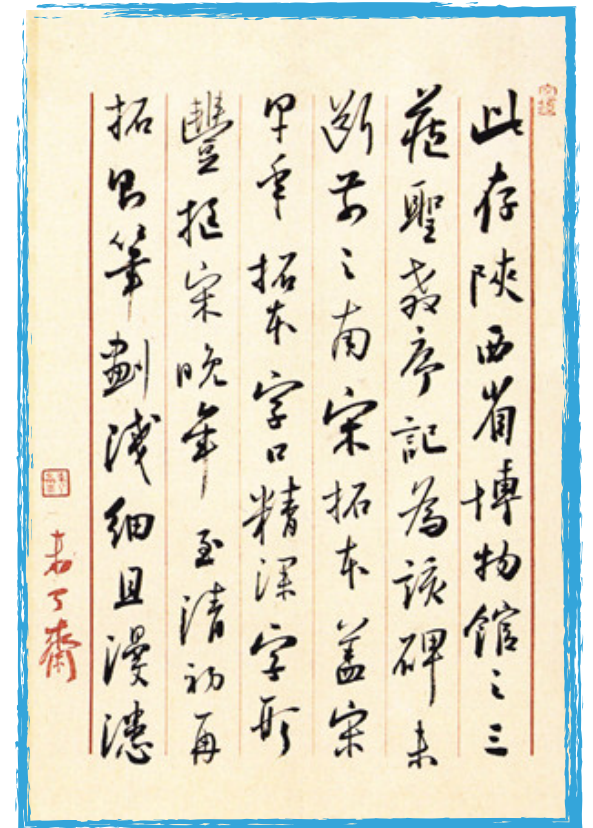 此存陝西省博物館之三
藏聖教序記為該碑未
斷前之南宋拓本蓋宋
早年拓本字口精深字形
豐挺宋晚年至清初再
拓則筆劃淺細且漫漶